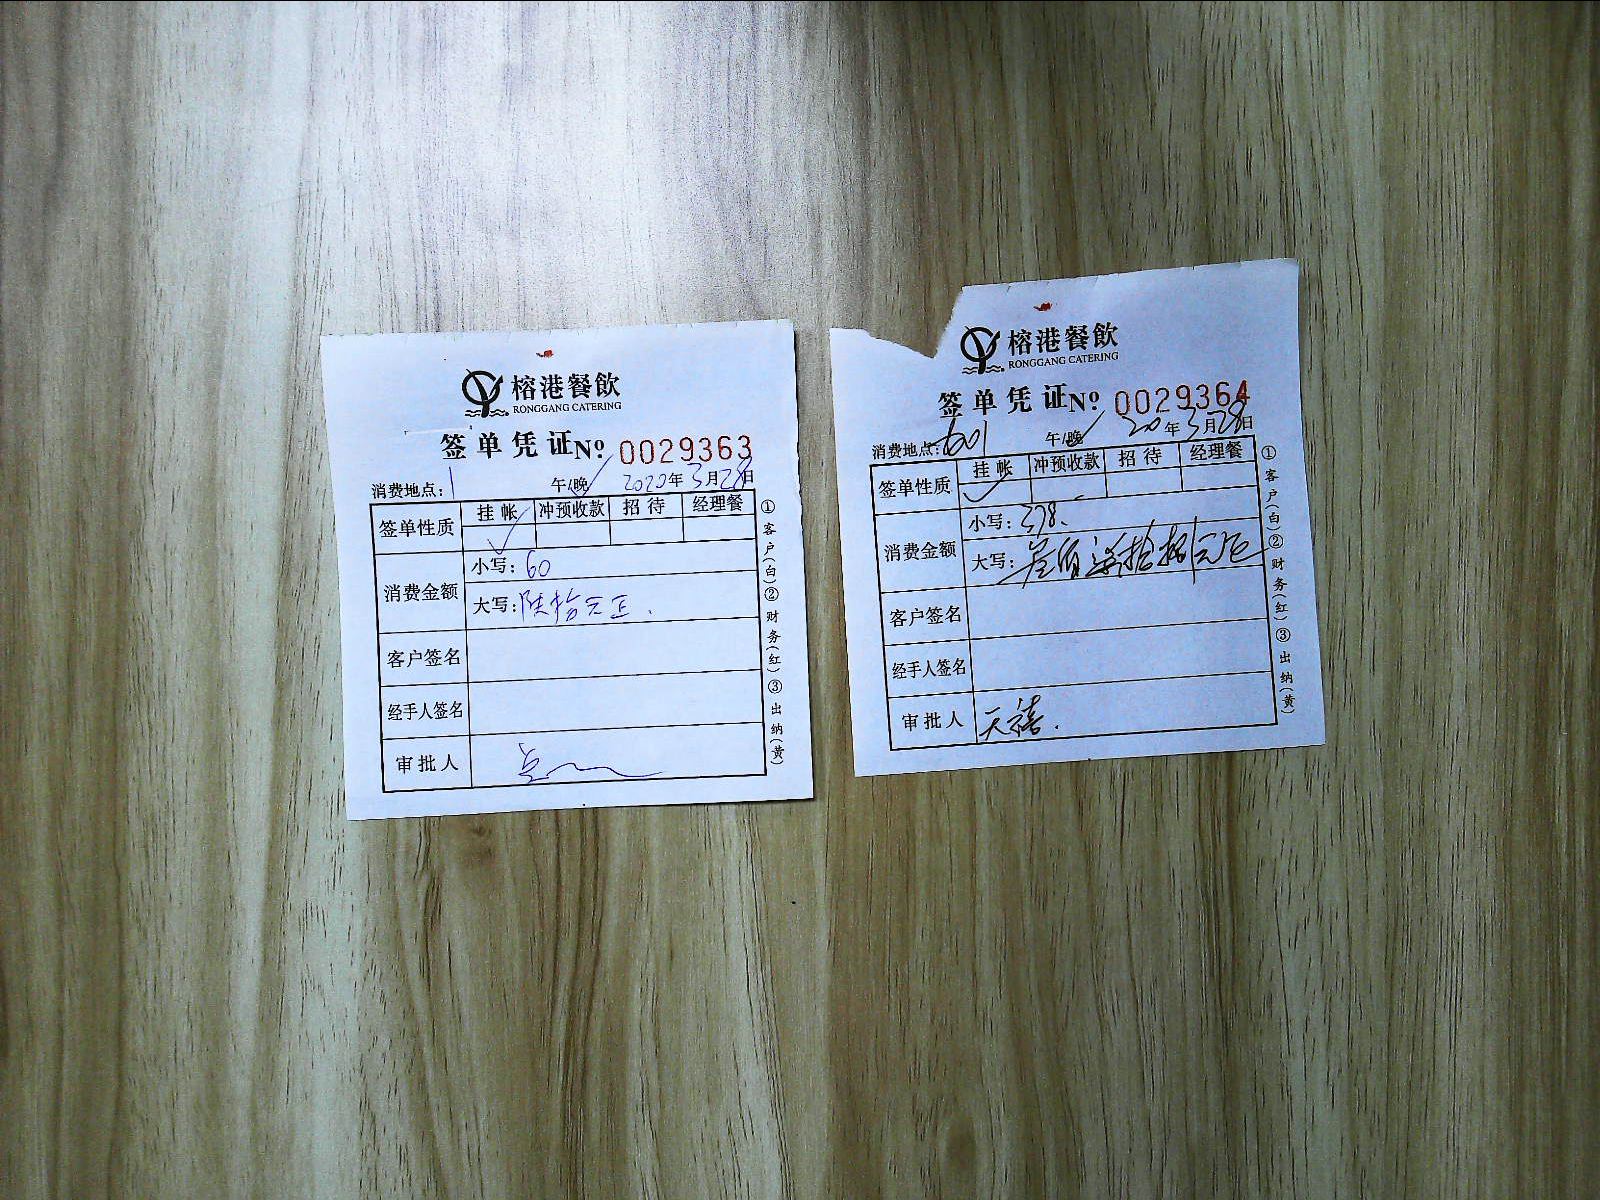 榕港餐飲
RONGGANG CATERING
签单凭证№ 0029363
消费地点: 1 午/晚 2020年3月28日
签单性质 挂帐 冲预收款 招待 经理餐
消费金额
小写: 60
大写: 陆拾元正.
客户签名
经手人签名
审批人
①客户(白)②财务(红)③出纳(黄)
榕港餐飲
RONGGANG CATERING
签单凭证№ 0029364
消费地点: 601 午/晚 20年3月28日
签单性质 挂帐 冲预收款 招待 经理餐
消费金额
小写: 378.
大写: 叁佰柒拾捌元正
客户签名
经手人签名
审批人 天禧.
①客户(白)②财务(红)③出纳(黄)